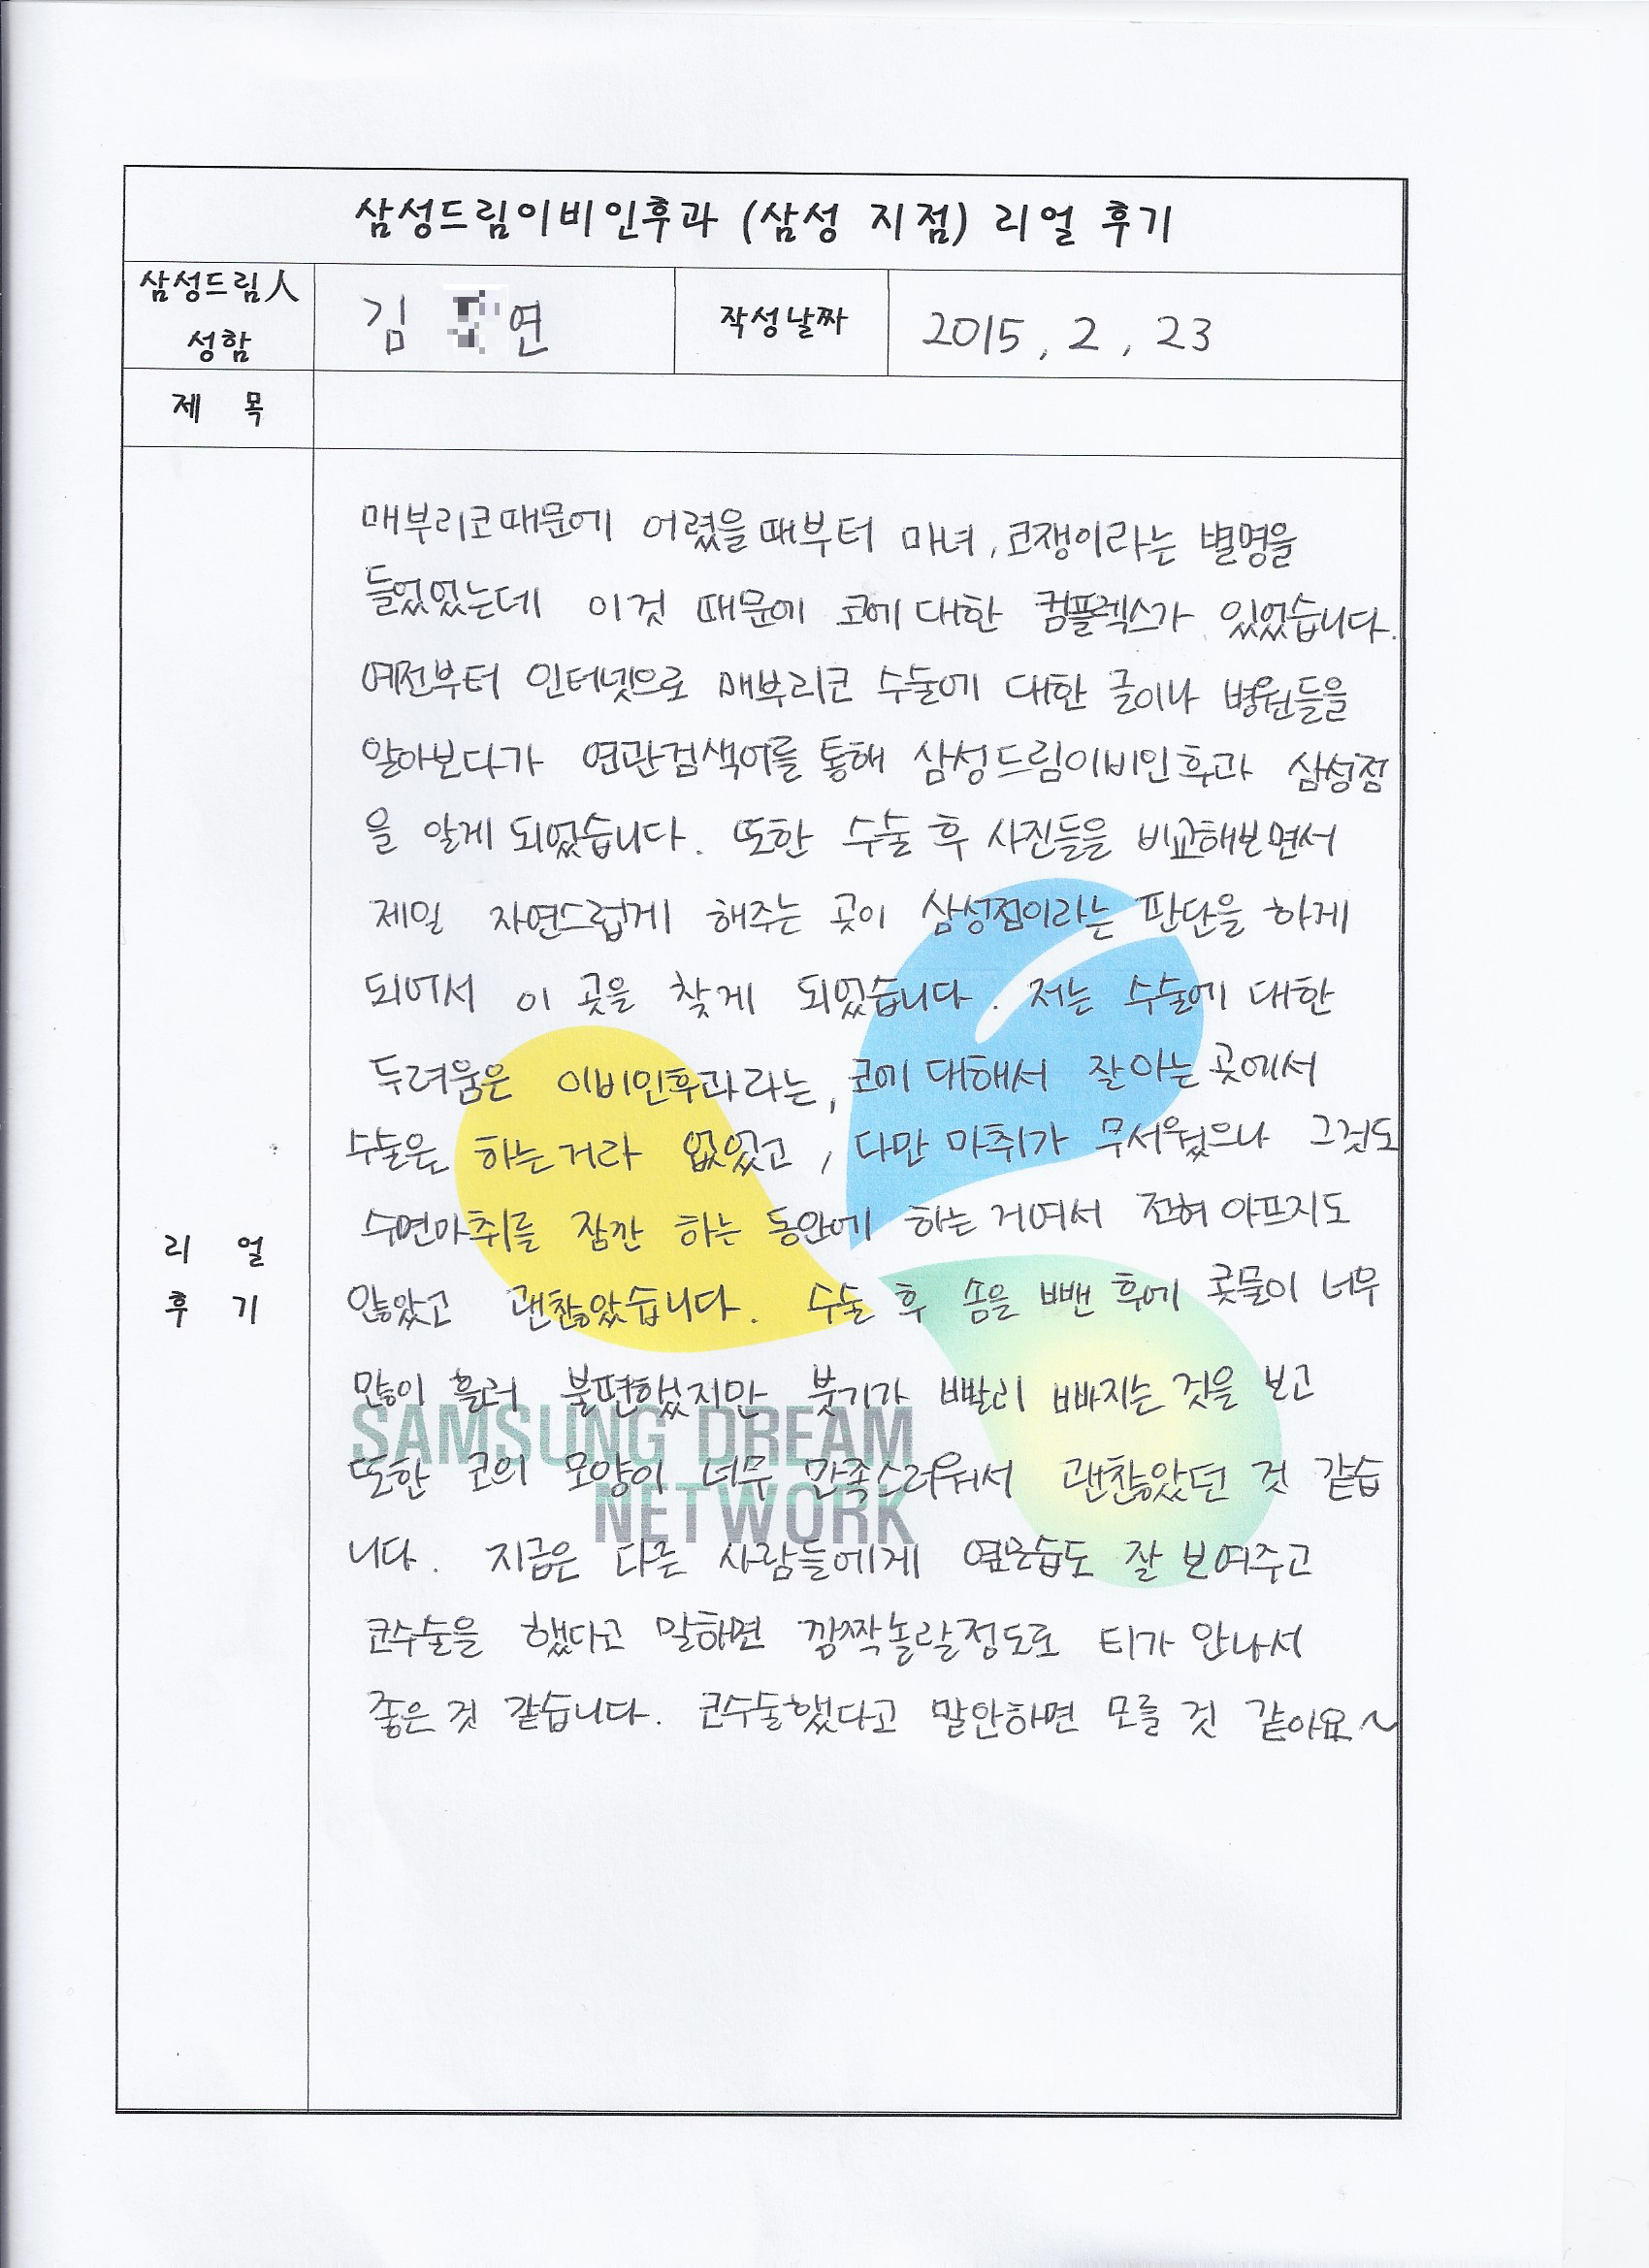 삼성드림이비인후과 (삼성 지점) 리얼 후기
삼성드림人
성함
김 연
작성날짜
2015, 2, 23
제 목
매부리코때문에 어렸을때부터 마녀, 코쟁이라는 별명을
들었었는데 이것 때문에 코에대한 컴플렉스가 있었습니다.
예전부터 인터넷으로 매부리코 수술에 대한 글이나 병원들을
알아보다가 연관검색어를 통해 삼성드림이비인후과 삼성점
을 알게 되었습니다. 또한 수술 후 사진들을 비교해보면서
제일 자연드럽게 해주는 곳이 삼성점이라는 판단을 하게
되어서 이 곳을 찾게 되었습니다. 저는 수술에 대한
두려움은 이비인후과라는, 코에 대해서 잘아는 곳에서
수술은 하는거라 없었고, 다만 마취가 무서웠으나 그것도
수면마취를 잠깐 하는 동안에 하는거여서 전혀 아프지도
않았고 괜찮았습니다. 수술 후 솜을 뺀 후에 콧물이 너무
많이 흘러 불편했지만 붓기가 빨리 빠지는 것을 보고
또한 코의 모양이 너무 만족스러워서 괜찮았던 것 같습
니다. 지금은 다른 사람들에게 옆모습도 잘 보여주고
코수술을 했다고 말하면 깜짝놀랄정도로 티가 안나서
좋은 것 같습니다. 코수술했다고 말안하면 모를 것 같아요~
리 얼
후 기
SAMSUNG DREAM
NETWORK